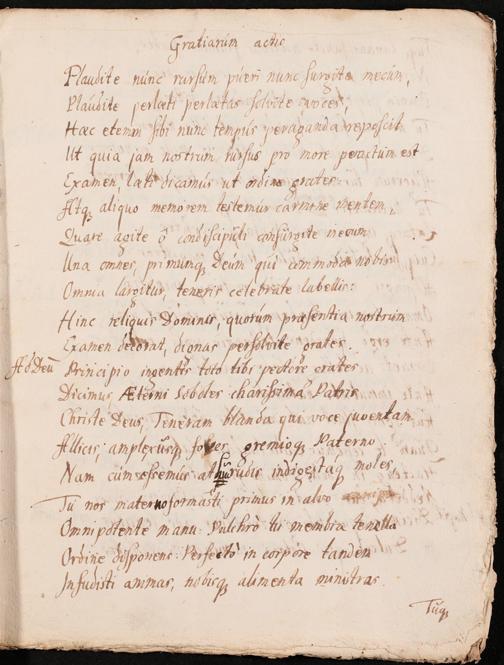 Gratiarum actio
Plaudite nunc rursum pueri nunc surgite mecum,
Plaudite perlæti perlætas solvite voces,
Hæc etenim sibi nunc tempus peraganda reposcit
Ut quia jam nostrum rursus pro more peractum est
Examen, læti dicamus ut ordine grates.
Atq. aliquo memorem testemur carmine mentem,
Quare agite ô condiscipuli consurgite mecum
Una omnes, primumq. Deum qui commoda nobis
Omnia largitur, teneris celebrate labellis:
Hinc reliquis Dominis, quorum præsentia nostrum
Examen decorat, dignas persolvite grates.
Ad Deū Principio ingentes toto tibi pectore grates
Dicimus, Æterni Soboles charissima Patris
Christe Deus, Teneram blanda qui voce juventam
Allicis, amplexusq. foves gremioq. Paterno
Nam cùm essemus rudis indigestaq. moles,
Tu nos materno formasti primus in alvo
Omnipotente manu. Pulchrò tu membra tenella
Ordine disponens. Perfecto in corpore tandem
Infudisti animas, nobisq. alimenta ministras.
Tuq.